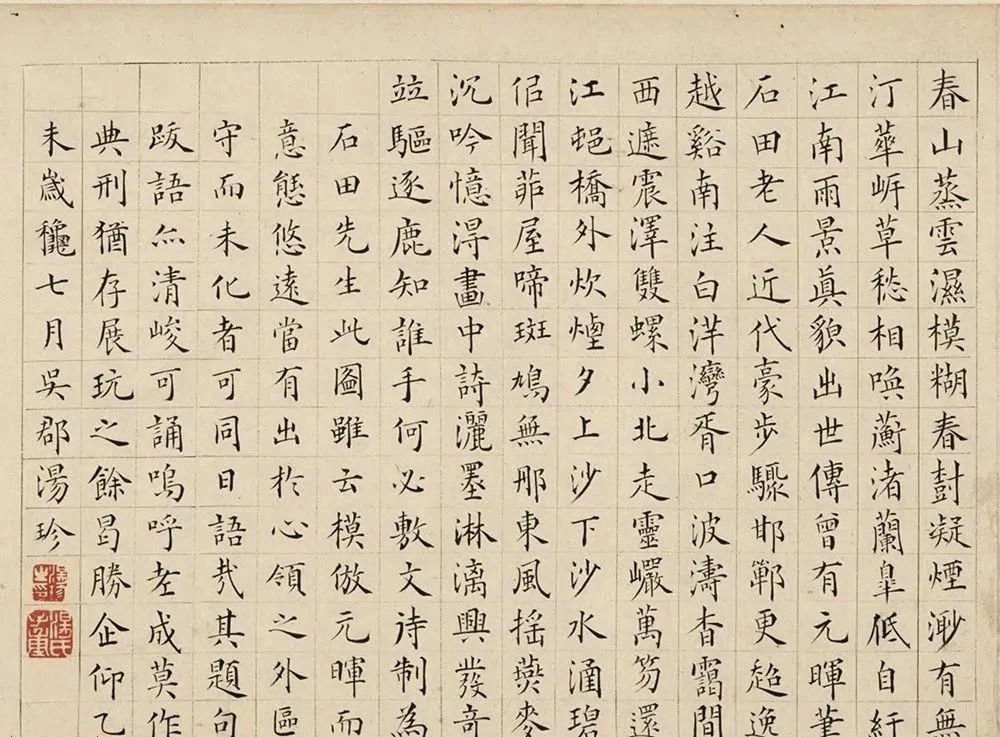 春山蒸雲濕模糊春樹凝煙渺有無
汀蘋岸草愁相喚蘅渚蘭皐低自紆
江南雨景眞貌出世傳曾有元暉筆
石田老人近代豪步驟邯鄲更超逸
越谿南注白洋灣胥口波濤杳靄間
西遮震澤雙螺小北走靈巖萬笏還
江蜺橋外炊煙夕上沙下沙水涵碧
侣聞茆屋啼斑鳩無那東風搖燕麥
沉吟憶淂畫中詩灑墨淋漓興發奇
竝驅逐鹿知誰手何必敷文待制為
石田先生此圖雖云模倣元暉而
意態悠遠當有出於心領之外區
守而未化者可同日語㢤其題句
跋語亦清峻可誦嗚呼老成莫作
典刑猶存展玩之餘曷勝企仰乙
未歲龝七月吳郡湯珍
湯珍
湯氏子重